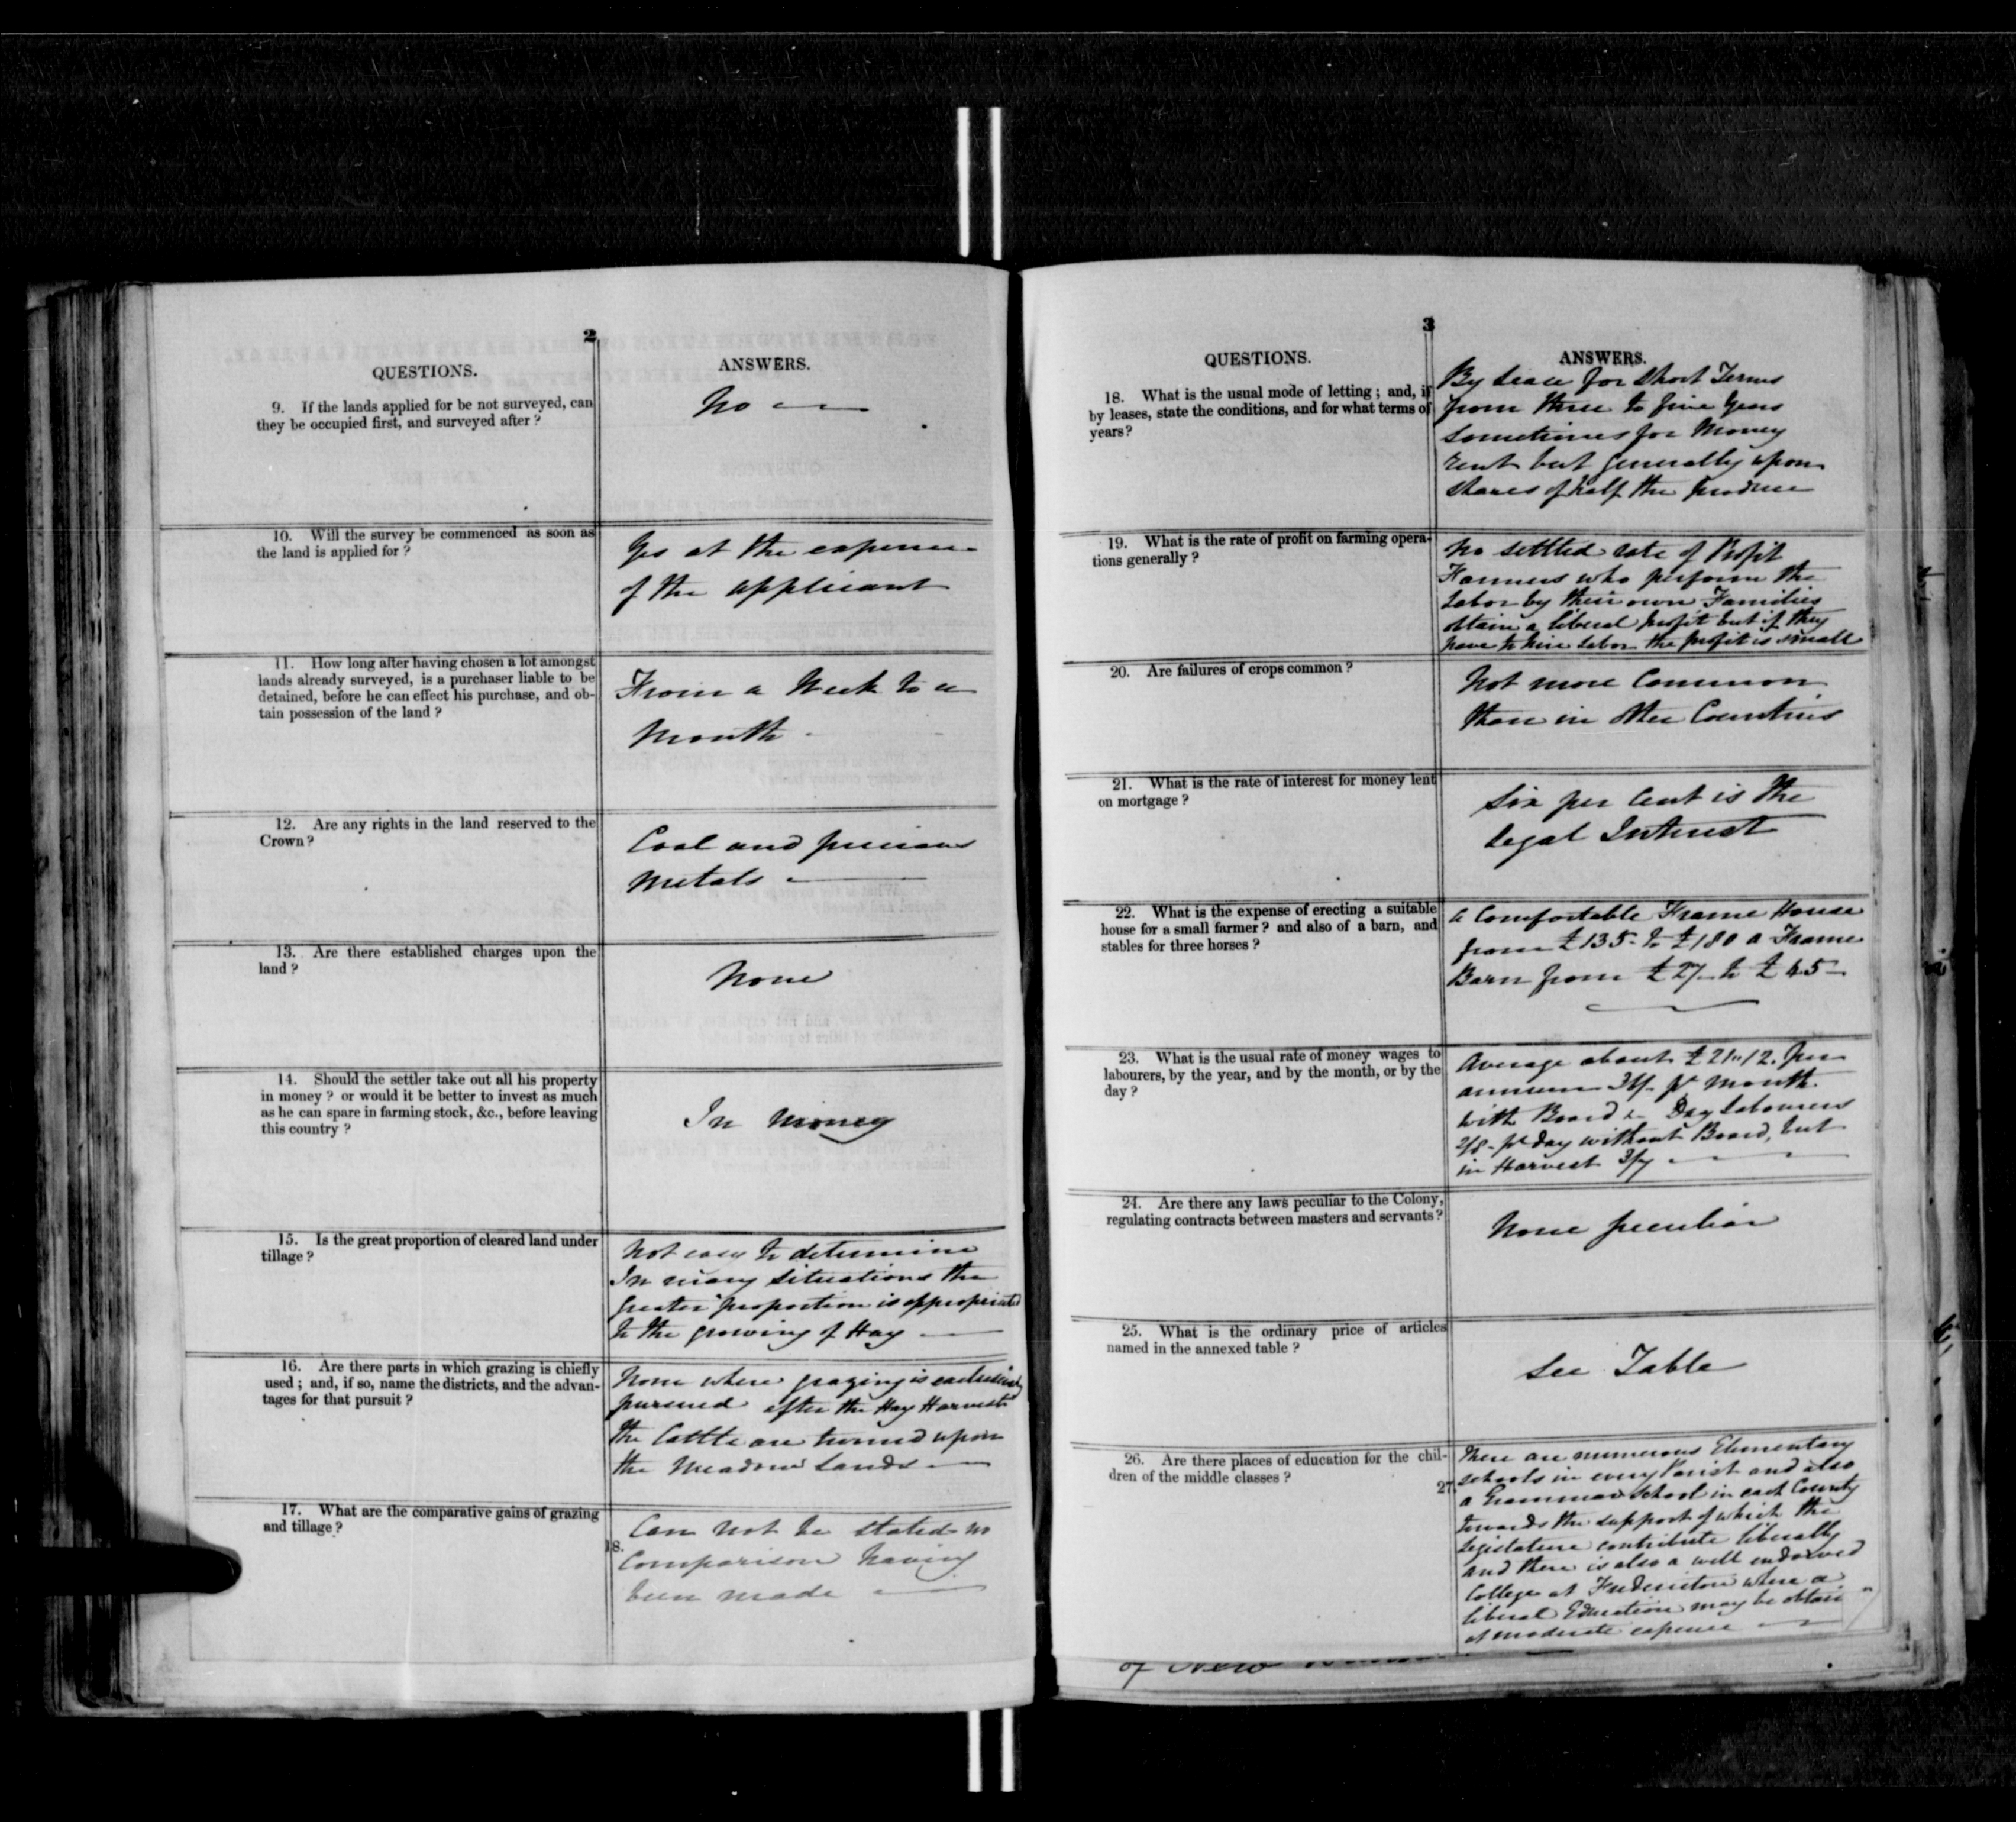 2
QUESTIONS.
ANSWERS.
9. If the lands applied for be not surveyed, can
they be occupied first, and surveyed after ?
No
10. Will the survey be commenced as soon as
the land is applied for ?
Yes at the expense
of the applicant
11. How long after having chosen a lot amongst
lands already surveyed, is a purchaser liable to be
detained, before he can effect his purchase, and ob-
tain possession of the land ?
From a Week to a
Month
12. Are any rights in the land reserved to the
Crown ?
Coal and precious
Metals
13. Are there established charges upon the
land ?
None
14. Should the settler take out all his property
in money ? or would it be better to invest as much
as he can spare in farming stock, &c., before leaving
this country ?
In Money
15. Is the great proportion of cleared land under
tillage ?
Not easy to determine
In many situations the
greater proportion is appropriated
to the growing of Hay
16. Are there parts in which grazing is chiefly
used ; and, if so, name the districts, and the advan-
tages for that pursuit ?
None where grazing is exclusively
pursued after the Hay Harvest
the Cattle are turned upon
the Meadow Lands
17. What are the comparative gains of grazing
and tillage ?
18.
Can not be stated no
Comparison having
been made
3
QUESTIONS.
ANSWERS.
18. What is the usual mode of letting ; and, if
by leases, state the conditions, and for what terms of
years ?
By Lease for short Terms
from three to five years
sometimes for Money
rent but generally upon
shares of half the produce
19. What is the rate of profit on farming opera-
tions generally ?
No settled rate of Profit
Farmers who perform the
Labor by their own Families
obtain a liberal profit but if they
have to hire Labor the profit is small
20. Are failures of crops common ?
Not more Common
than in other Countries
21. What is the rate of interest for money lent
on mortgage ?
Six per Cent is the
legal Interest
22. What is the expense of erecting a suitable
house for a small farmer ? and also of a barn, and
stables for three horses ?
A Comfortable Frame House
from £135 to £180 a Frame
Barn from £27 to £45
23. What is the usual rate of money wages to
labourers, by the year, and by the month, or by the
day ?
Average about £21"12. per
annum 36/- pr Month
with Board & Day Labourers
pr day without Board, but
in Harvest
24. Are there any laws peculiar to the Colony,
regulating contracts between masters and servants ?
None peculiar
25. What is the ordinary price of articles
named in the annexed table ?
See Table
26. Are there places of education for the chil-
dren of the middle classes ?
27.
There are numerous Elementary
schools in every Parish and also
a Grammar School in each County
towards the support of which the
Legislature contribute liberally
and there is also a well endowed
College at Fredericton where a
liberal Education may be obtain
at moderate expense
of New